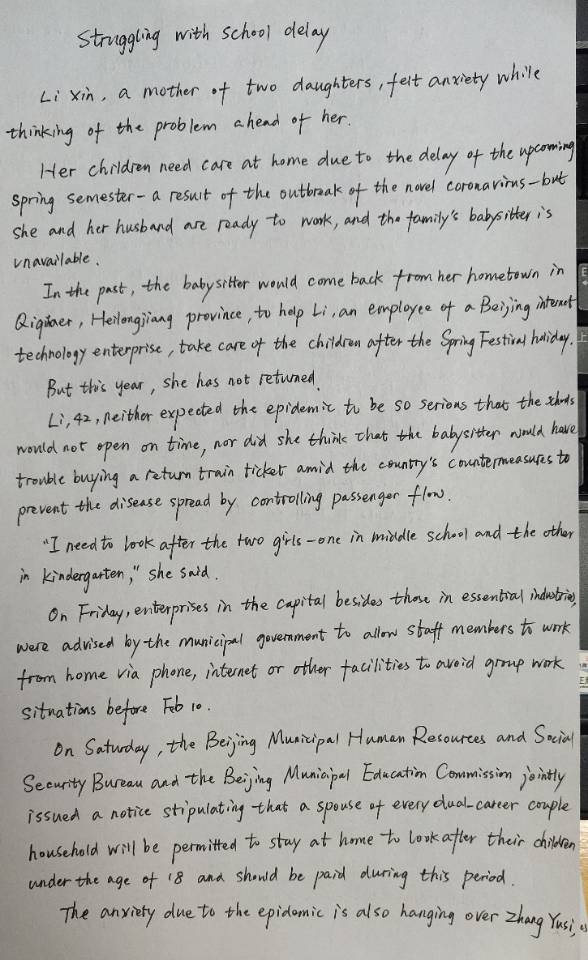 Struggling with school delay
Li Xin, a mother of two daughters, felt anxiety while
thinking of the problem ahead of her.
Her children need care at home due to the delay of the upcoming
spring semester - a result of the outbreak of the novel coronavirus - but
she and her husband are ready to work, and the family's babysitter is
unavailable.
In the past, the babysitter would come back from her hometown in
Qiqihaer, Heilongjiang province, to help Li, an employee of a Beijing internet
technology enterprise, take care of the children after the Spring Festival holiday.
But this year, she has not returned.
Li, 42, neither expected the epidemic to be so serious that the schools
would not open on time, nor did she think that the babysitter would have
trouble buying a return train ticket amid the country's countermeasures to
prevent the disease spread by controlling passenger flow.
"I need to look after the two girls - one in middle school and the other
in kindergarten," she said.
On Friday, enterprises in the capital besides those in essential industries,
were advised by the municipal government to allow staff members to work
from home via phone, internet or other facilities to avoid group work
situations before Feb 10.
On Saturday, the Beijing Municipal Human Resources and Social
Security Bureau and the Beijing Municipal Education Commission jointly
issued a notice stipulating that a spouse of every dual-career couple
household will be permitted to stay at home to look after their children
under the age of 18 and should be paid during this period.
The anxiety due to the epidemic is also hanging over Zhang Yusi,